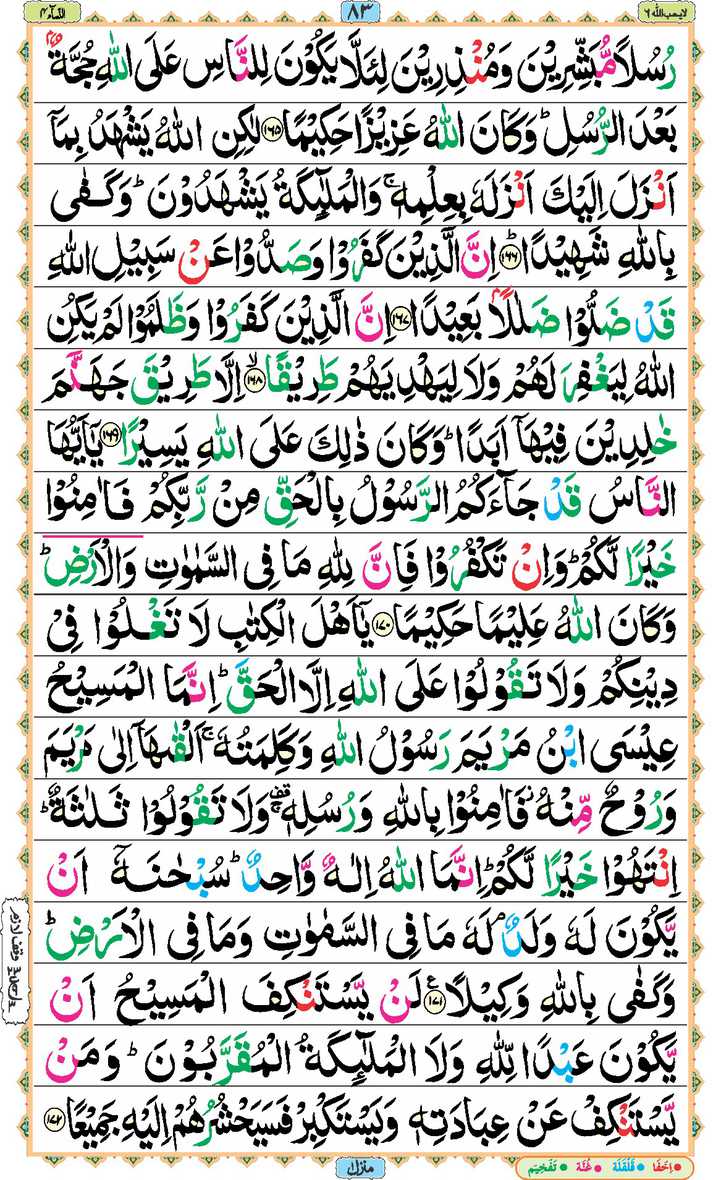 لایحب الله ٦ ٨٣ النسآء ٤
رُسُلًا مُّبَشِّرِیْنَ وَمُنْذِرِیْنَ لِئَلَّا یَكُوْنَ لِلنَّاسِ عَلَی اللّٰهِ حُجَّةٌۢ
بَعْدَ الرُّسُلِ ؕ وَكَانَ اللّٰهُ عَزِیْزًا حَكِیْمًا ۝١٦٥ لٰكِنِ اللّٰهُ یَشْهَدُ بِمَاۤ
اَنْزَلَ اِلَیْكَ اَنْزَلَهٗ بِعِلْمِهٖ ۚ وَالْمَلٰٓئِكَةُ یَشْهَدُوْنَ ؕ وَكَفٰی
بِاللّٰهِ شَهِیْدًا ۝١٦٦ؕ اِنَّ الَّذِیْنَ كَفَرُوْا وَصَدُّوْا عَنْ سَبِیْلِ اللّٰهِ
قَدْ ضَلُّوْا ضَلٰلًاۢ بَعِیْدًا ۝١٦٧ اِنَّ الَّذِیْنَ كَفَرُوْا وَظَلَمُوْا لَمْ یَكُنِ
اللّٰهُ لِیَغْفِرَ لَهُمْ وَلَا لِیَهْدِیَهُمْ طَرِیْقًا ۝١٦٨ۙ اِلَّا طَرِیْقَ جَهَنَّمَ
خٰلِدِیْنَ فِیْهَاۤ اَبَدًا ؕ وَكَانَ ذٰلِكَ عَلَی اللّٰهِ یَسِیْرًا ۝١٦٩ یٰۤاَیُّهَا
النَّاسُ قَدْ جَآءَكُمُ الرَّسُوْلُ بِالْحَقِّ مِنْ رَّبِّكُمْ فَاٰمِنُوْا
خَیْرًا لَّكُمْ ؕ وَاِنْ تَكْفُرُوْا فَاِنَّ لِلّٰهِ مَا فِی السَّمٰوٰتِ وَالْاَرْضِ ؕ
وَكَانَ اللّٰهُ عَلِیْمًا حَكِیْمًا ۝١٧٠ یٰۤاَهْلَ الْكِتٰبِ لَا تَغْلُوْا فِیْ
دِیْنِكُمْ وَلَا تَقُوْلُوْا عَلَی اللّٰهِ اِلَّا الْحَقَّ ؕ اِنَّمَا الْمَسِیْحُ
عِیْسَی ابْنُ مَرْیَمَ رَسُوْلُ اللّٰهِ وَكَلِمَتُهٗ ۚ اَلْقٰىهَاۤ اِلٰی مَرْیَمَ
وَرُوْحٌ مِّنْهُ ؗ فَاٰمِنُوْا بِاللّٰهِ وَرُسُلِهٖ ۫ۚ وَلَا تَقُوْلُوْا ثَلٰثَةٌ ؕ
اِنْتَهُوْا خَیْرًا لَّكُمْ ؕ اِنَّمَا اللّٰهُ اِلٰهٌ وَّاحِدٌ ؕ سُبْحٰنَهٗۤ اَنْ
یَّكُوْنَ لَهٗ وَلَدٌ ۘ لَهٗ مَا فِی السَّمٰوٰتِ وَمَا فِی الْاَرْضِ ؕ
وقف لازم
وَكَفٰی بِاللّٰهِ وَكِیْلًا ۝١٧١ع لَنْ یَّسْتَنْكِفَ الْمَسِیْحُ اَنْ
یَّكُوْنَ عَبْدًا لِّلّٰهِ وَلَا الْمَلٰٓئِكَةُ الْمُقَرَّبُوْنَ ؕ وَمَنْ
یَّسْتَنْكِفْ عَنْ عِبَادَتِهٖ وَیَسْتَكْبِرْ فَسَیَحْشُرُهُمْ اِلَیْهِ جَمِیْعًا ۝١٧٢
منزل ١
• اِخْفَا • قَلْقَلَة • غُنَّة • تَفْخِیْم